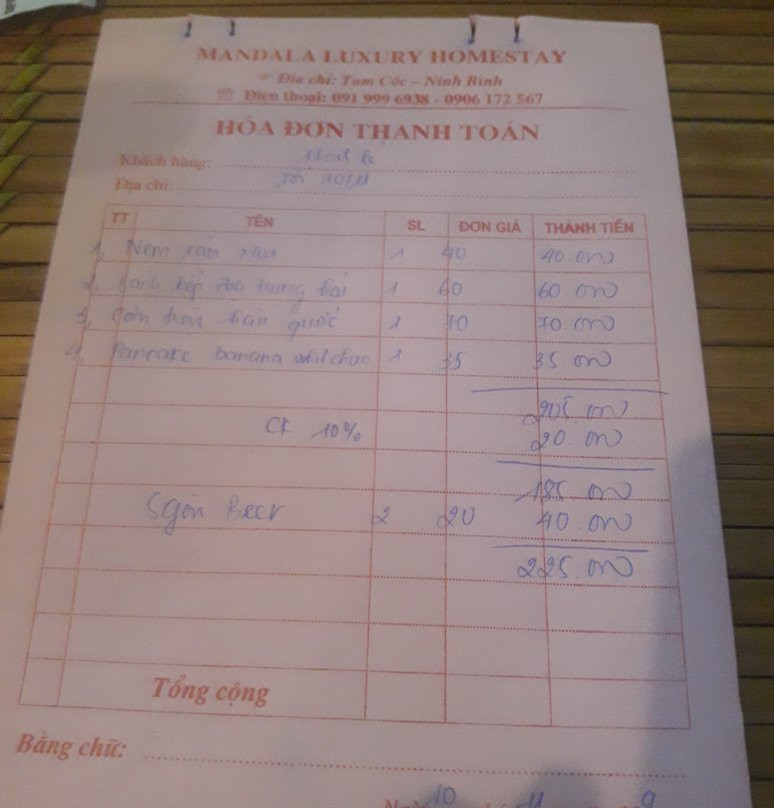 MANDALA LUXURY HOMESTAY
Địa chỉ: Tam Cốc - Ninh Bình
Điện thoại: 091 999 6938 - 0906 172 567
HÓA ĐƠN THANH TOÁN
Khách hàng:
Địa chỉ: 10/11
TT TÊN SL ĐƠN GIÁ THÀNH TIỀN
1, Nem rau 1 40 40.000
2, trứng 1 60 60 000
3, Cơm trộn hàn quốc 1 70 70.000
4, Pancake banana 1 35 35 000
205.000
CK 10% 20 000
185.000
Sgòn Beer 2 20 40.000
225.000
Tổng cộng
Bằng chữ:
10 11 9